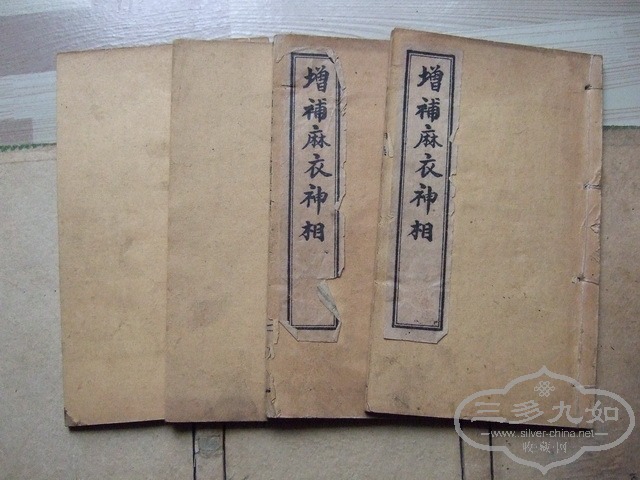 增補麻衣神相
增補麻衣神相
三多九如
www.silver-china.net
收藏网